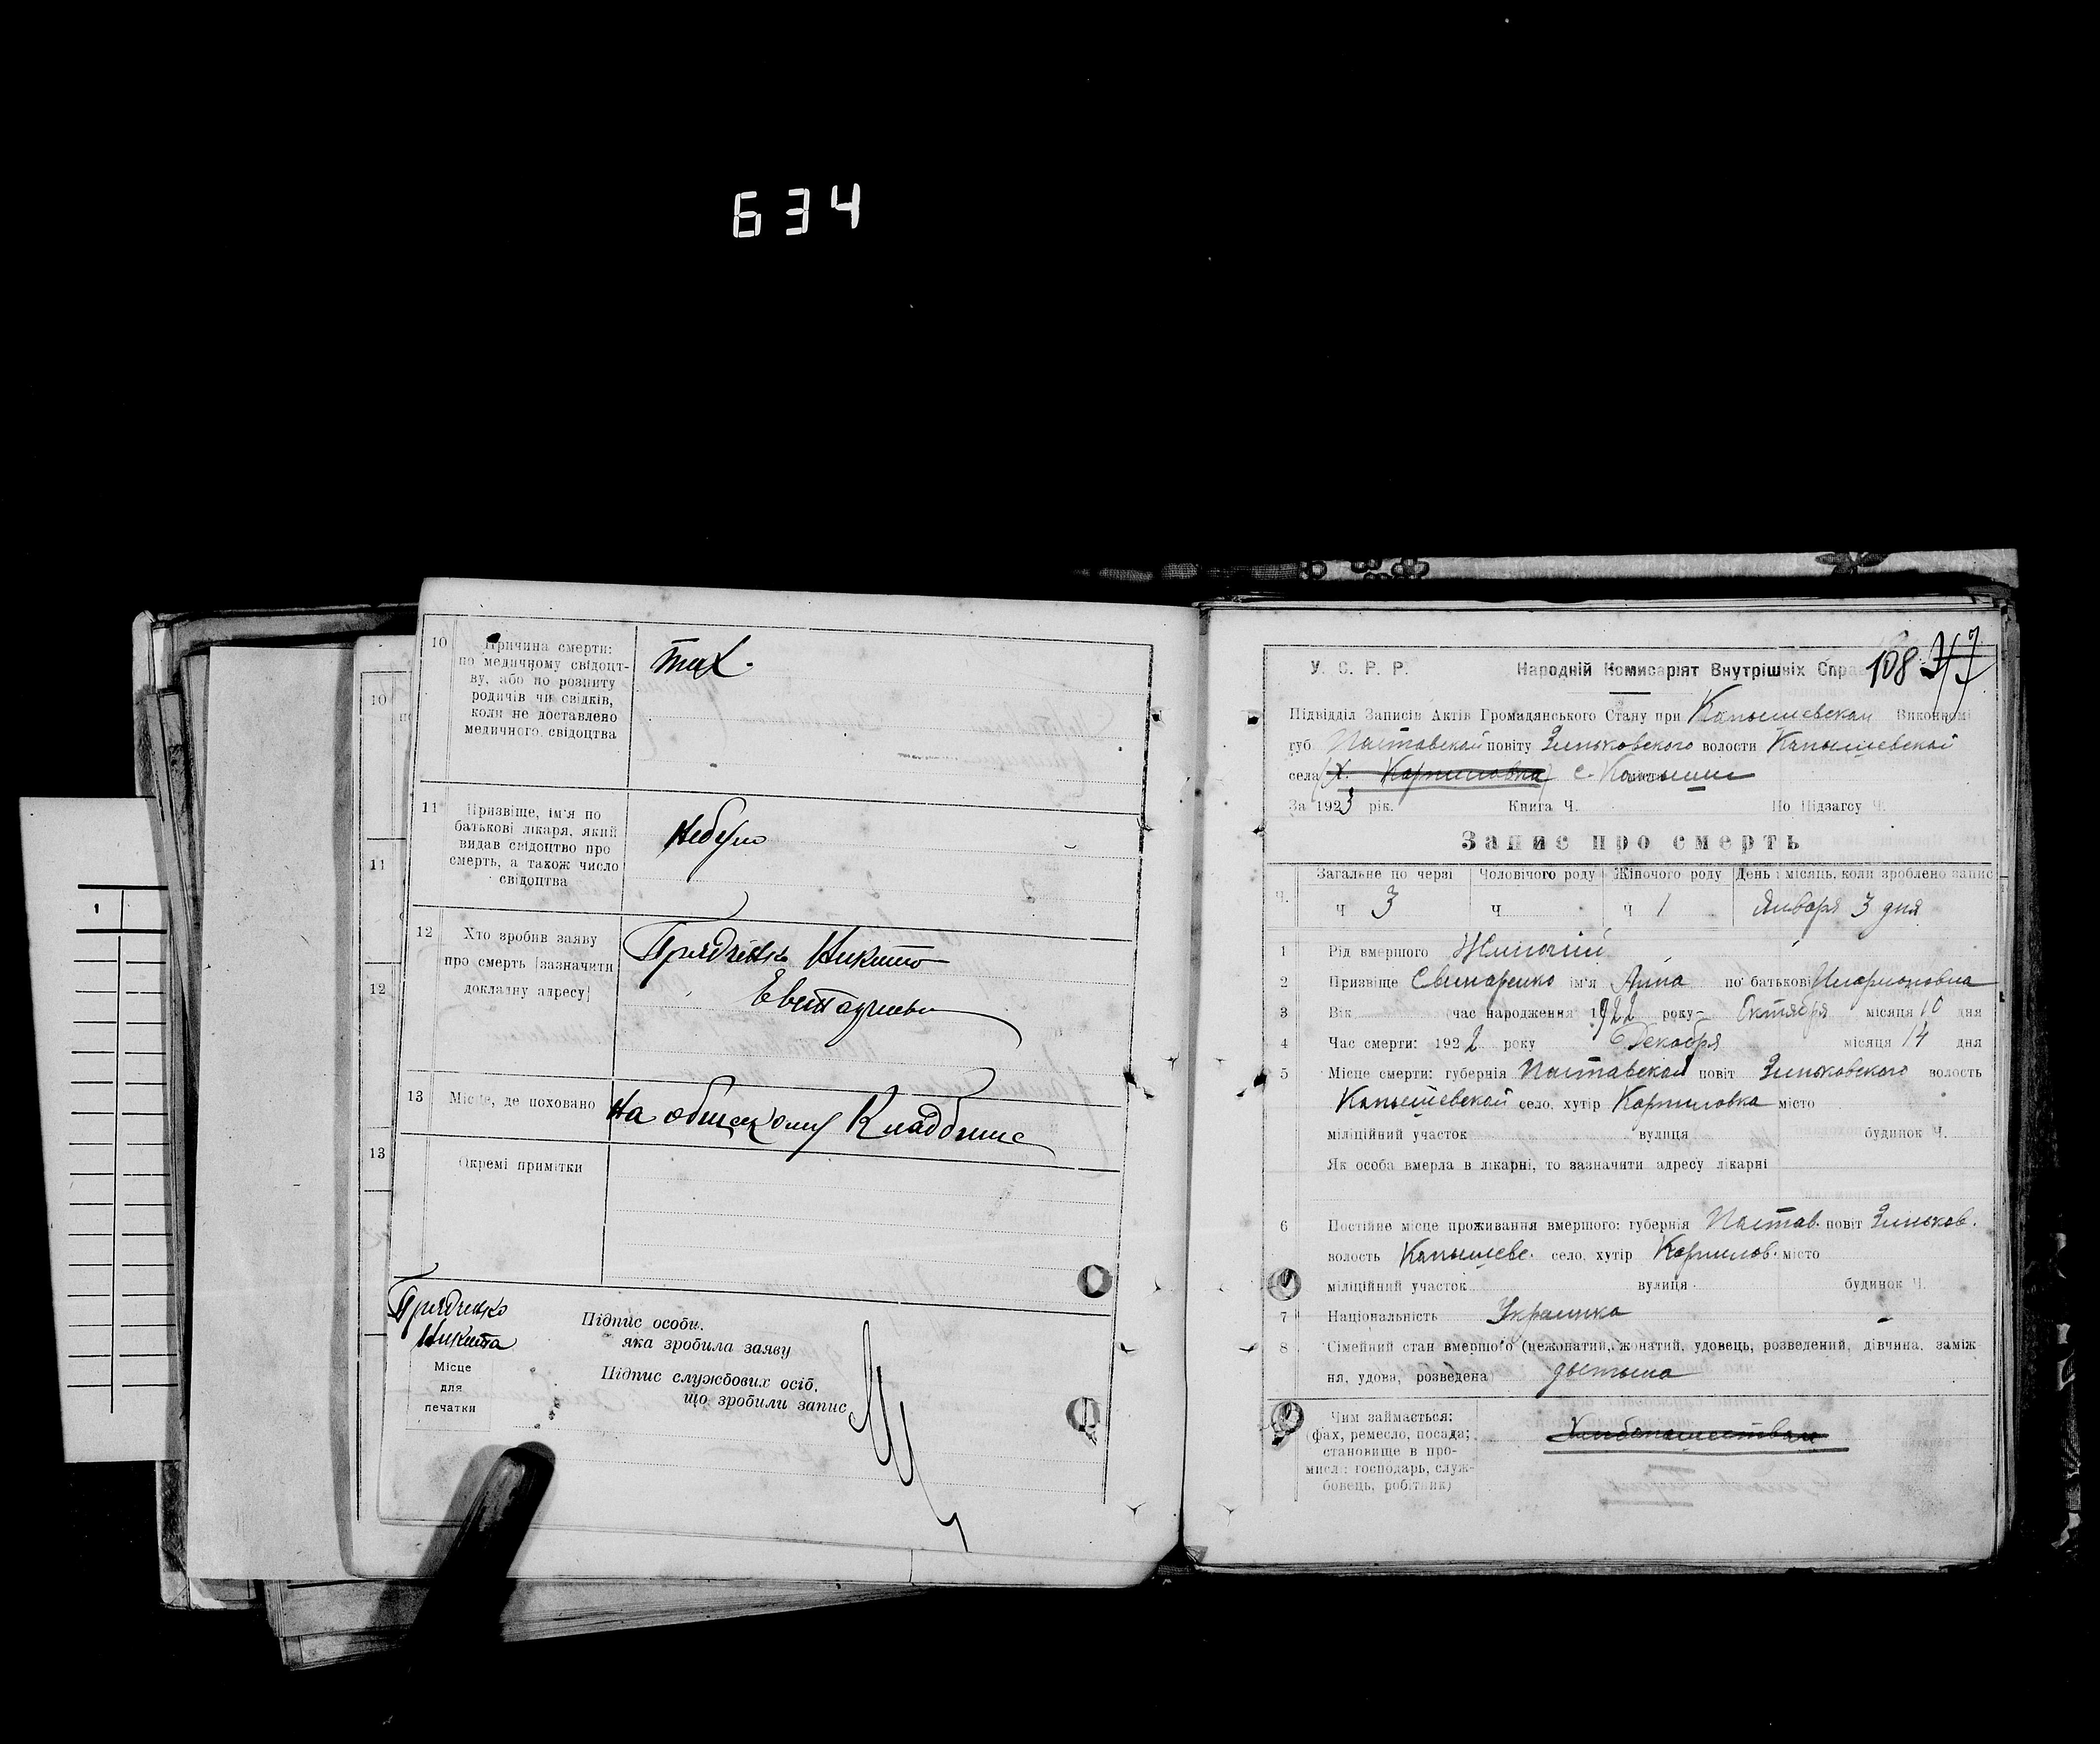 634
10
Причина смерти:
по медичному свідоцт-
ву, або по розпиту
родичів чи свідків,
коли не доставлено
медичного свідоцтва
тиф.
11
Призвіще, ім'я по
батькові лікаря, який
видав свідоцтво про
смерть, а також число
свідоцтва
Небуло
12
Хто зробив заяву
про смерть (зазначити
докладну адресу)
Прядченко Никита
13
Місце, де поховано
На общему Кладбище
Окремі примітки
Прядченко
Никита
Місце
для
печатки
Підпис особи,
яка зробила заяву
Підпис службових осіб,
що зробили запис
10
11
12
13
1
У. С. Р. Р.
Народній Комисаріят Внутрішніх Справ
108
Підвідділ Записів Актів Громадянського Стану при Капышевском Виконкомі
губ. Полтавской повіту Зиньковского волости Капышевской
села (х. Кормиловка) с. Капыши
За 1923 рік. Книга Ч. По Підзагсу Ч.
Запис про смерть
Ч.
Загальне по черзі Чоловічого роду Жіночого роду День і місяць, коли зроблено запис
Ч 3 Ч Ч 1 Января 3 дня
1 Рід вмершого Жиночий
2 Призвіще Свинаренко ім'я Анна по батькові Иларионовна
3 Вік час народження 1922 року Октября місяця 10 дня
4 Час смерти: 1922 року Декабря місяця 14 дня
5 Місце смерти: губернія Полтавской повіт Зиньковского волость
Капышевской село, хутір Кормиловка місто
міліційний участок вулиця будинок Ч.
Як особа вмерла в лікарні, то зазначити адресу лікарні
6 Постійне місце проживання вмершого: губернія Полтав. повіт Зиньков.
волость Капышевс. село, хутір Кормилов. місто
міліційний участок вулиця будинок Ч.
7 Національність Украинка
8 Сімейний стан вмершого (нежонатий, жонатий, удовець, розведений, дівчина, заміж-
ня, удова, розведена) дытына
Чим займається:
(фах, ремесло, посада;
становище в про-
мислі: господарь, служ-
бовець, робітник)
Хлибопашеством